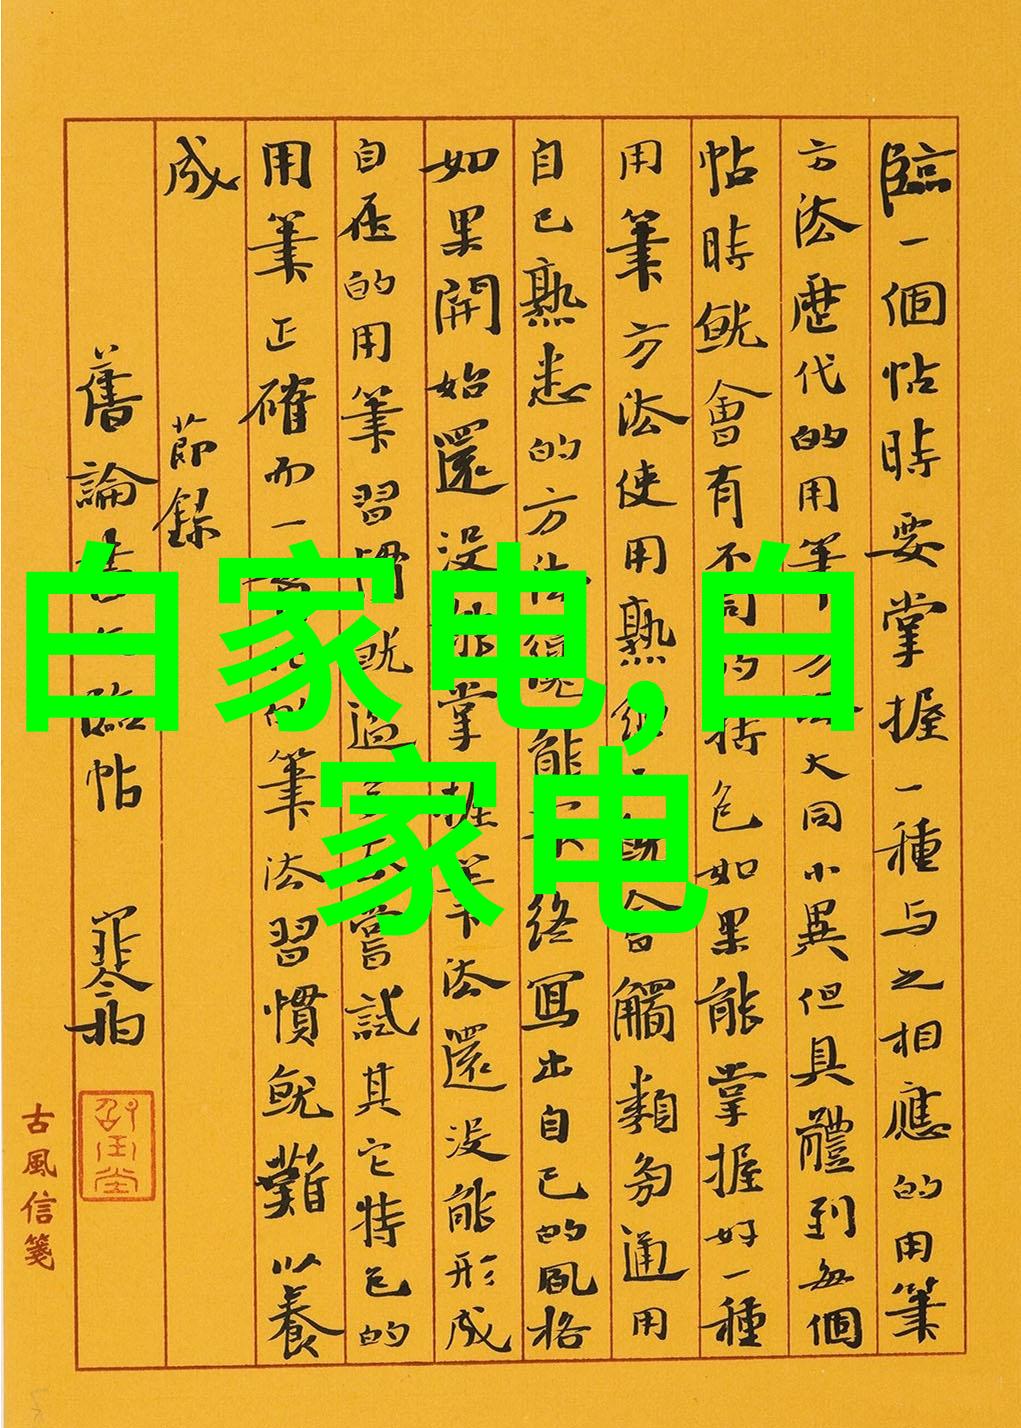 臨一個帖時要掌握一種与之相應的用筆
方法歷代的用筆方法大同小異但具體到每個
帖時就會有不同的特色如果能掌握好一種
用筆方法使用熟後會觸類旁通用
自己熟悉的方法能終寫出自己的風格
如果開始還没能掌握筆法還没能形成
自在的用筆習慣就過嘗試其它特色的
用筆正確而一的筆法習慣就難以養
成 節錄
舊論書臨帖
古風信箋
白家电,白
家电